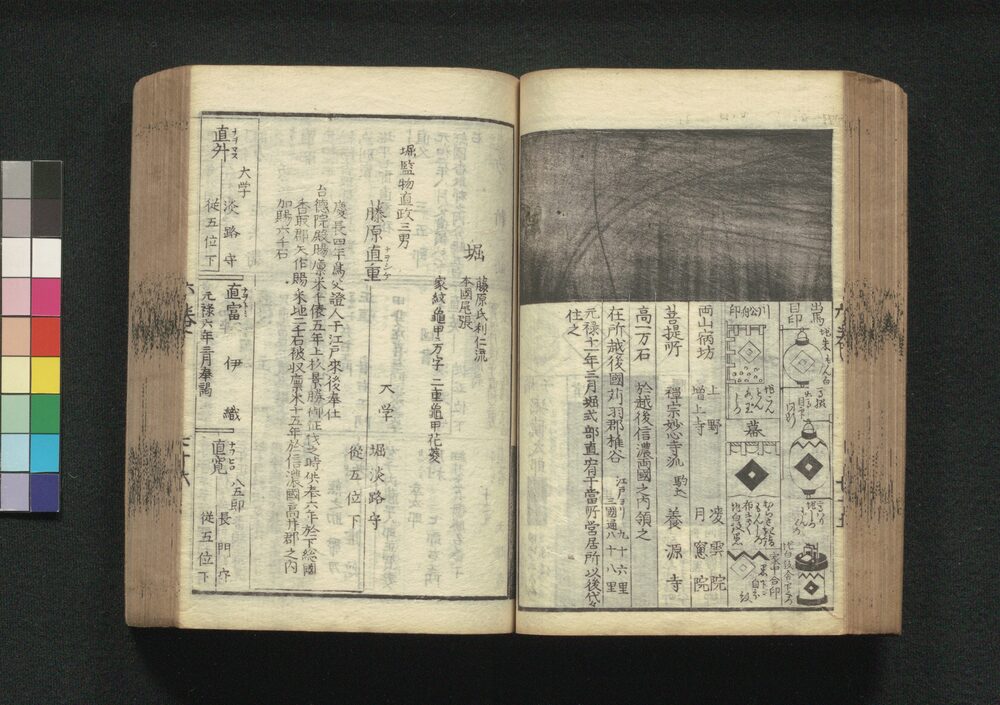 馬印
幕
家中合印
川舩印
両山宿坊
上野
凌雲院
増上寺
月窓院
菩提所
禅宗妙心寺派
駒込
養源寺
高一万石
於越後信濃両國之内領之
在所越後國刈羽郡椎谷
江戸ヨリ九十六里
三國通八十八里
元禄十一年三月堀式部直宥于當所営居所以後代々
住之
堀
藤原氏利仁流
本國尾張
家紋亀甲万字 二重亀甲花菱
堀監物直政三男
藤原直重
ナヲシゲ
大学
堀淡路守
從五位下
慶長四年為父證人于江戸來後奉仕
台德院殿賜廩米千俵五年上杦景勝征伐之時供奉六年於下総國
香取郡矢作賜采地二千石被収廩米十五年於信濃國高井郡之内
加賜六千石
直升
ナヲマス
大学
淡路守
從五位下
直冨
伊織
元禄六年三月奉謁
直寛
ナヲヒロ
八五郎
長門守
從五位下